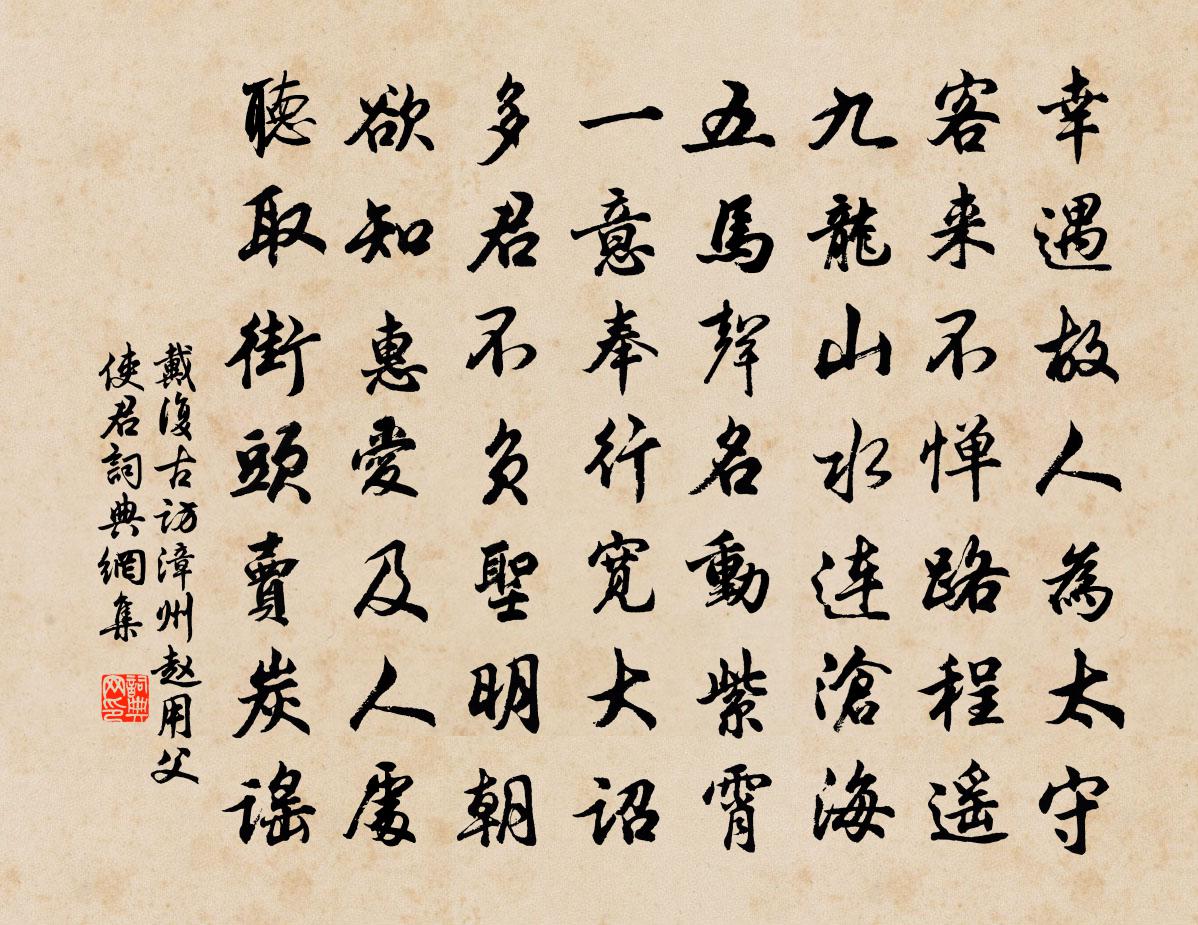 幸遇故人為太守
客来不惮路程遥
九龍山水連滄海
五馬聲名動紫霄
一意奉行寬大詔
多君不負聖明朝
欲知惠愛及人處
聽取街頭賣炭謠
戴復古訪漳州赵用父
使君詞典網集
詞典网印